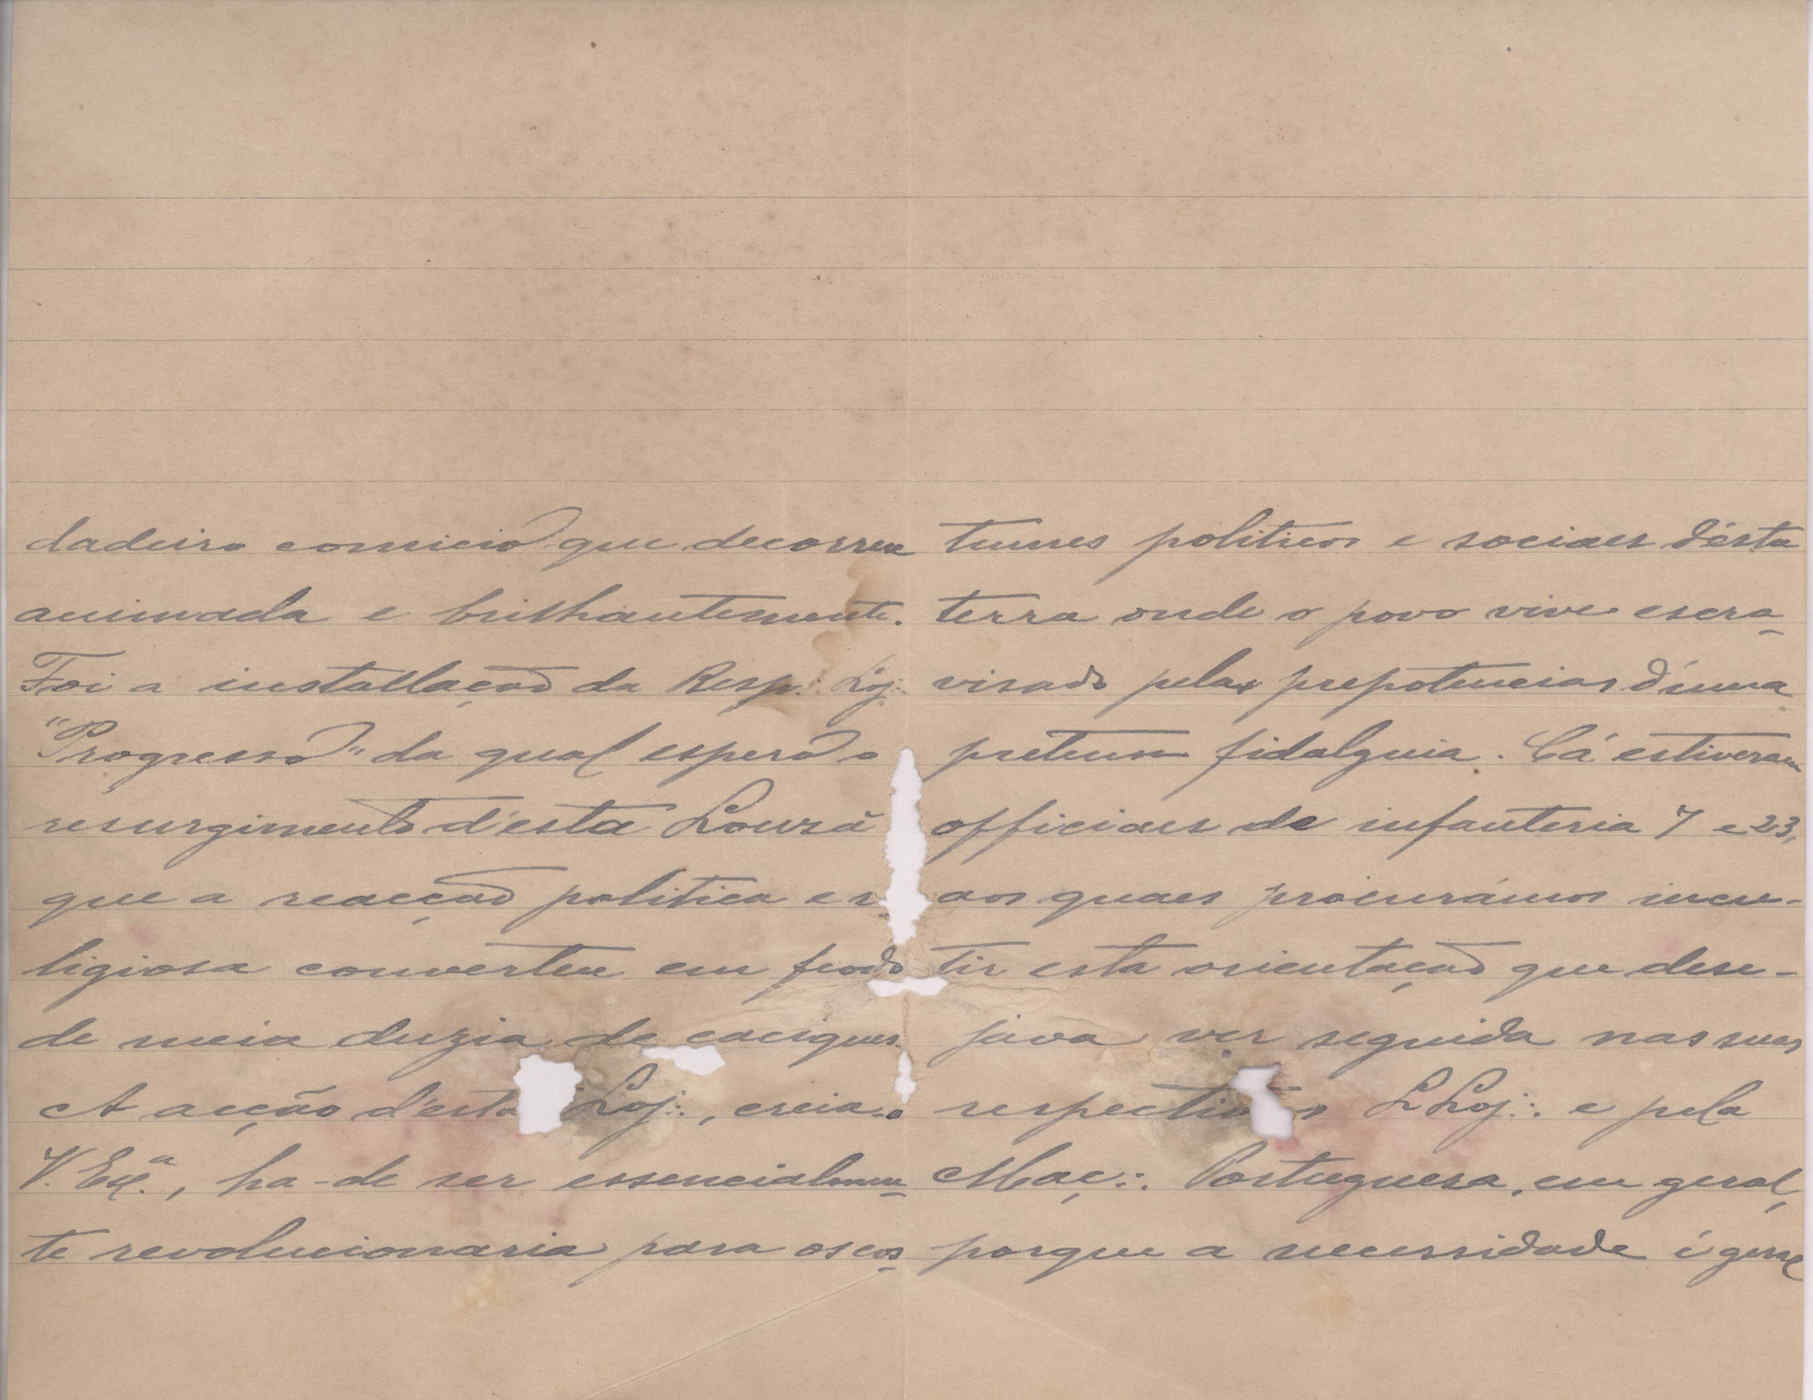 dadeiro comicio que decorreu
animada e brilhantemente.
Foi a installação da Resp∴ Loj∴
"Progresso" da qual espero o
resurgimento d'esta Louzã
que a reacção politica e re
ligiosa converteu em feudo
de meia duzia de caciques.
A acção d'esta Loj∴, creia-o
V. Exª., ha-de ser essencialmen-
te revolucionaria para os cos-
tumes politicos e sociaes d'ésta
terra onde o povo vive escra-
visado pelas prepotencias d'uma
pretensa fidalguia. Cá estiveram
officiaes de infanteria 7 e 23,
aos quaes procurámos incu-
tir esta orientação que dese-
java ver seguida nas suas
respectivas LLoj∴ e pela
Maç∴ Portuguesa, em geral,
porque a necessidade é geral